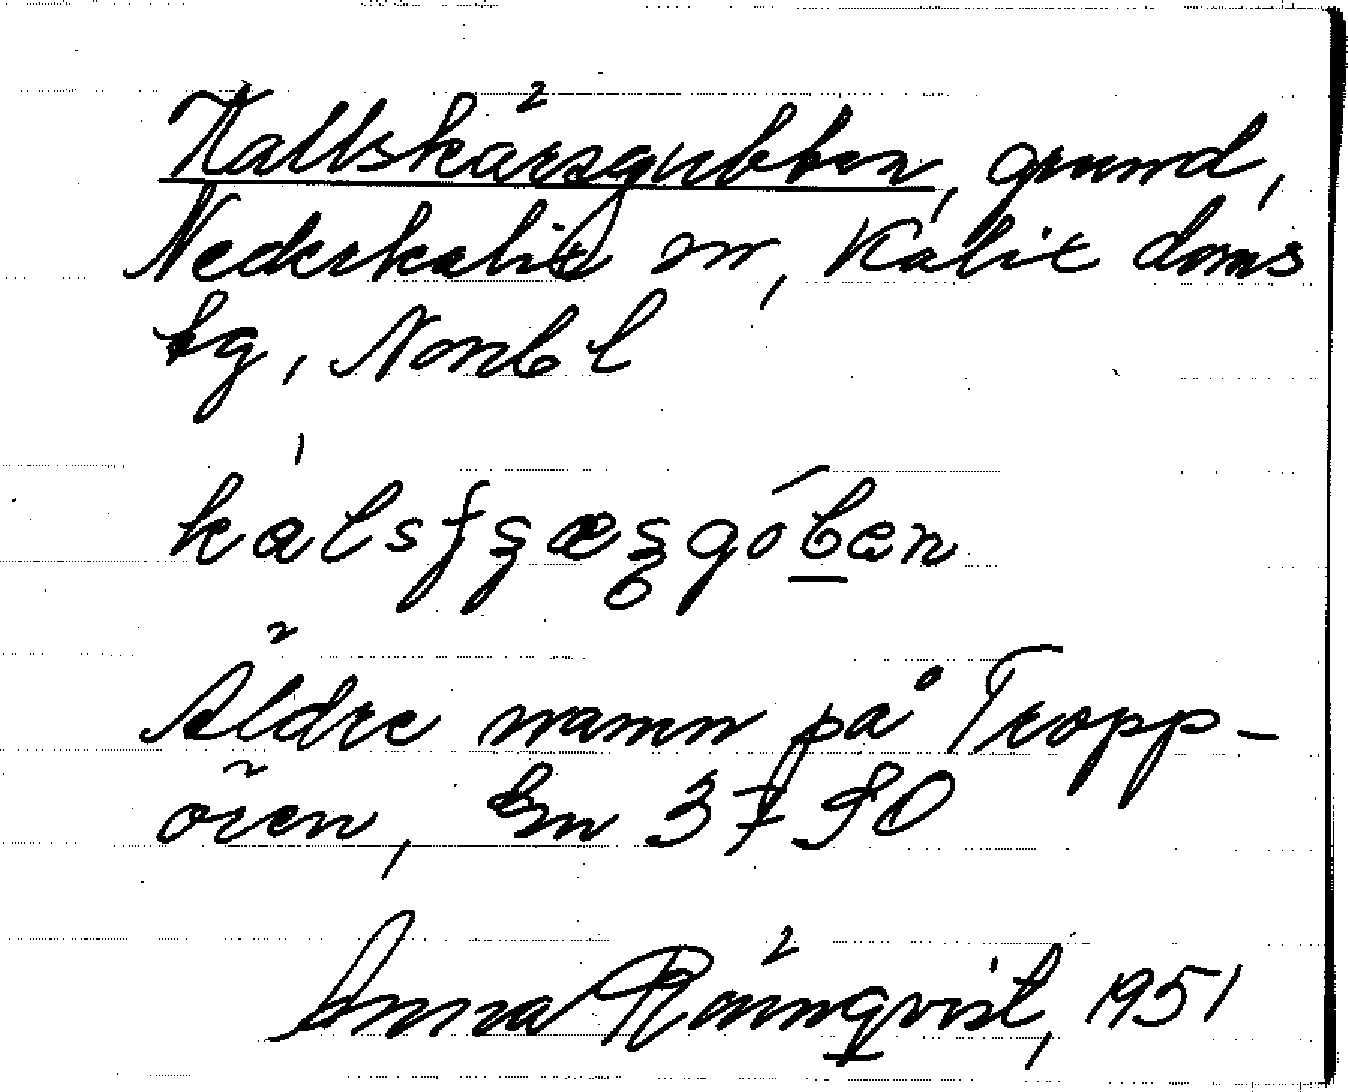 Kallskärsgubben, grund,
Nederkalix sn, Kalix doms
tg, Nonb l
Äldre namn på Tropp-
ören, Sm 3790
Anna Rönnqvist, 1951